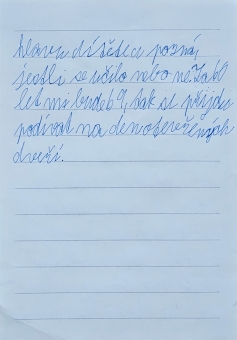 hlavu dítětce pozná,
jestli se učilo nebo ne. Za 60
let mi bude 69, tak se přijdu
podívat na den otevřených
dveří.